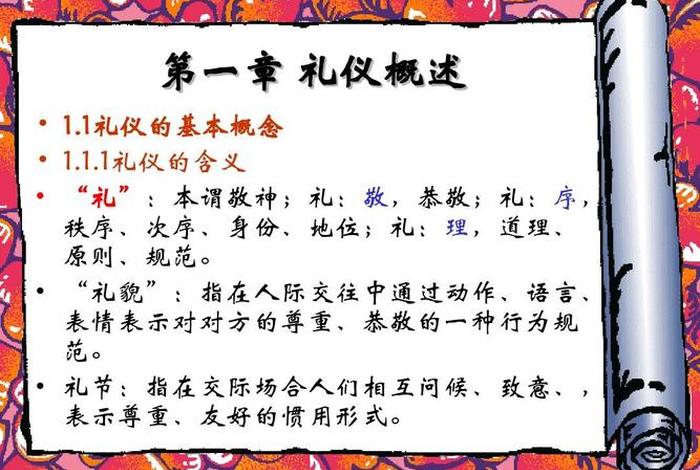 第一章 礼仪概述
• 1.1礼仪的基本概念
• 1.1.1礼仪的含义
• “礼”：本谓敬神；礼：敬，恭敬；礼：序，
秩序、次序、身份、地位；礼：理，道理、
原则、规范。
• “礼貌”：指在人际交往中通过动作、语言、
表情表示对对方的尊重、恭敬的一种行为规
范。
• 礼节：指在交际场合人们相互问候、致意、，
表示尊重、友好的惯用形式。